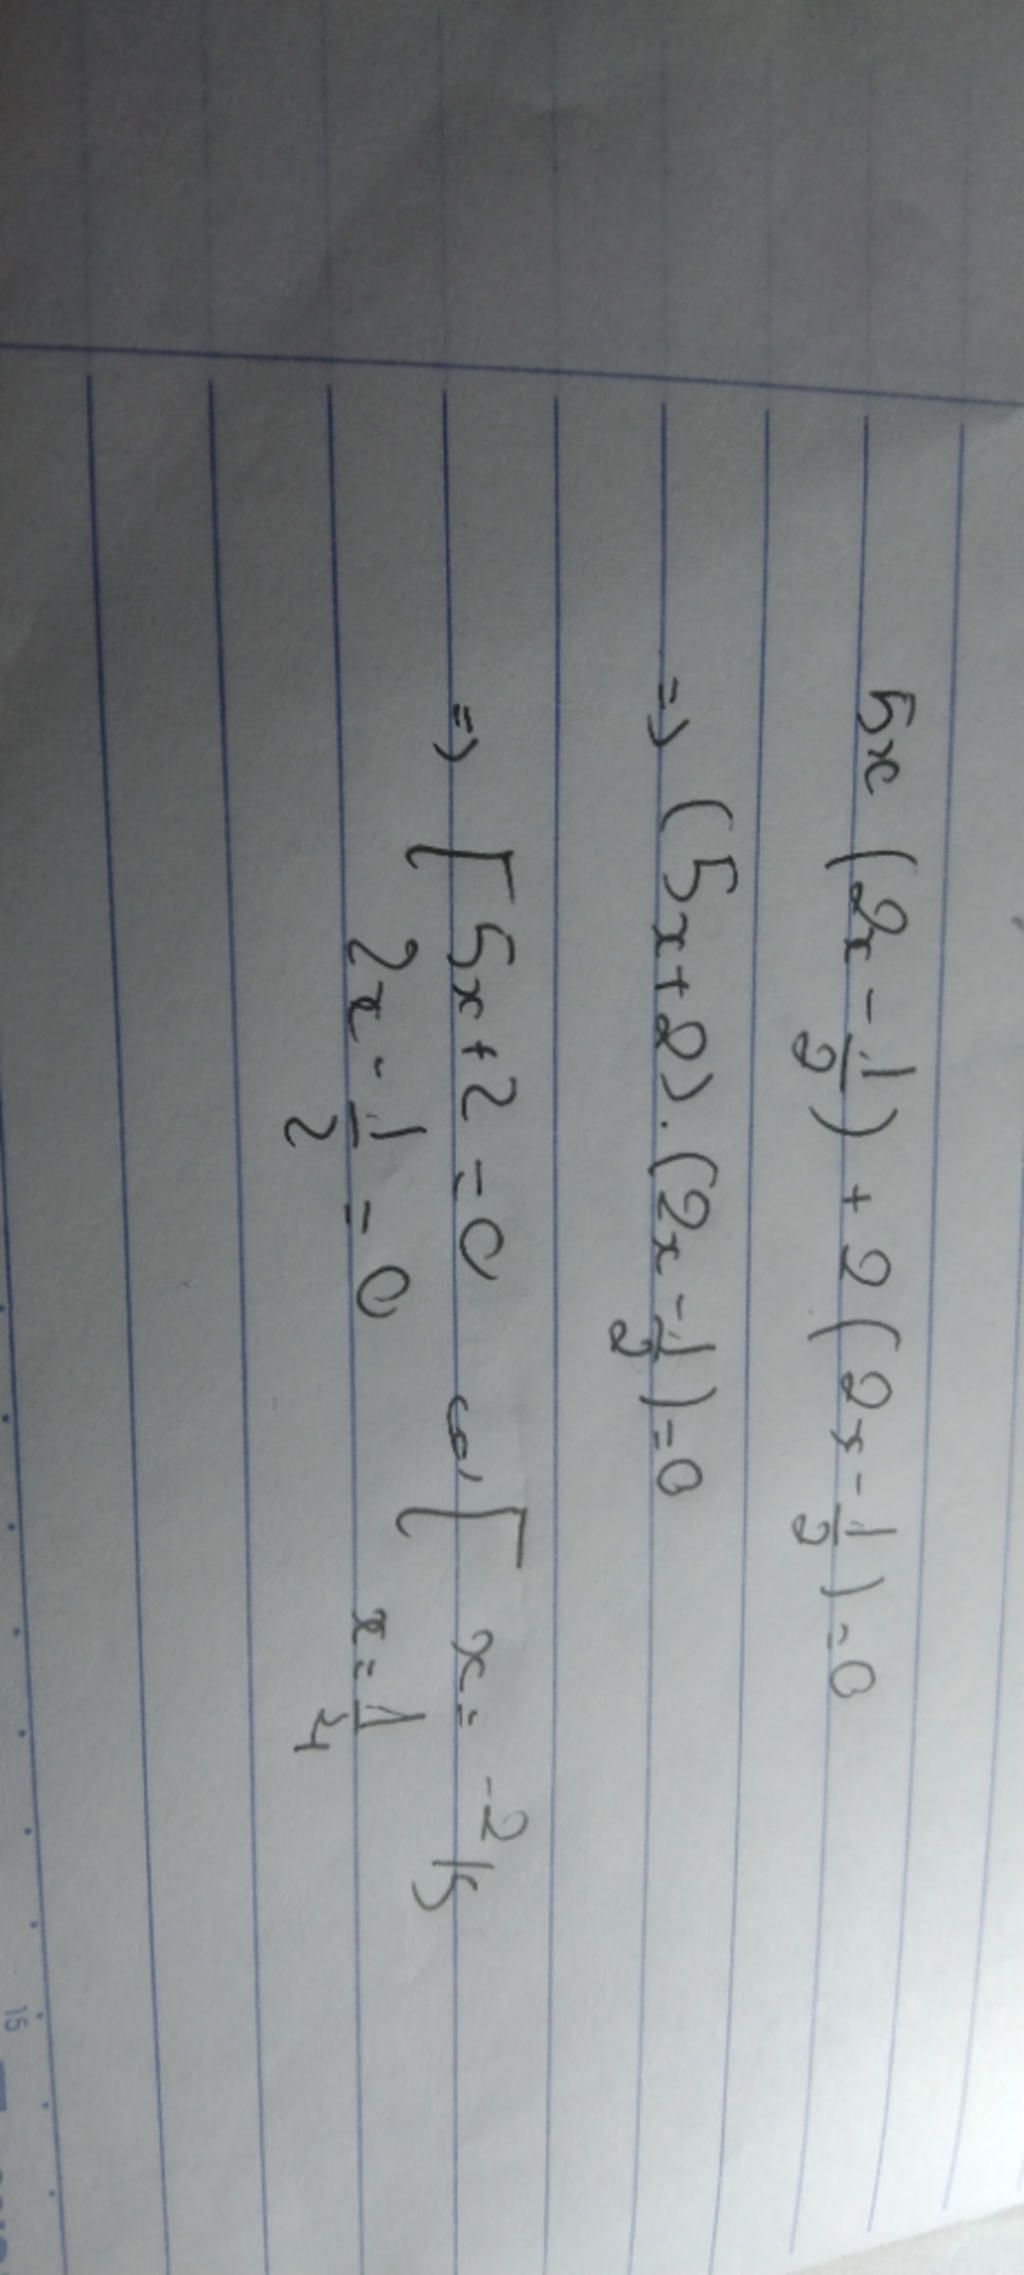 5x (2x - 1/2) + 2 (2x - 1/2) = 0
=> (5x + 2) . (2x - 1/2) = 0
=> [ 5x + 2 = 0 [ x = -2/5
2x - 1/2 = 0 x = 1/4
15